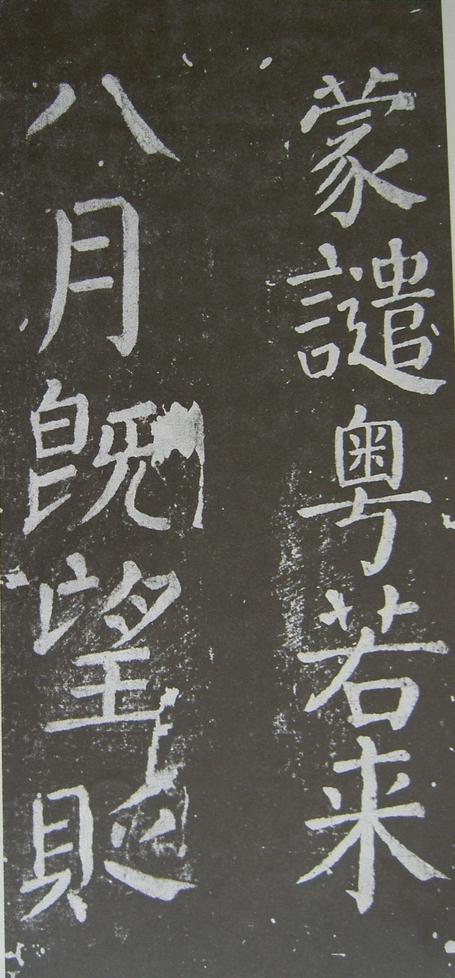 蒙譴粤若来
八月既望貶